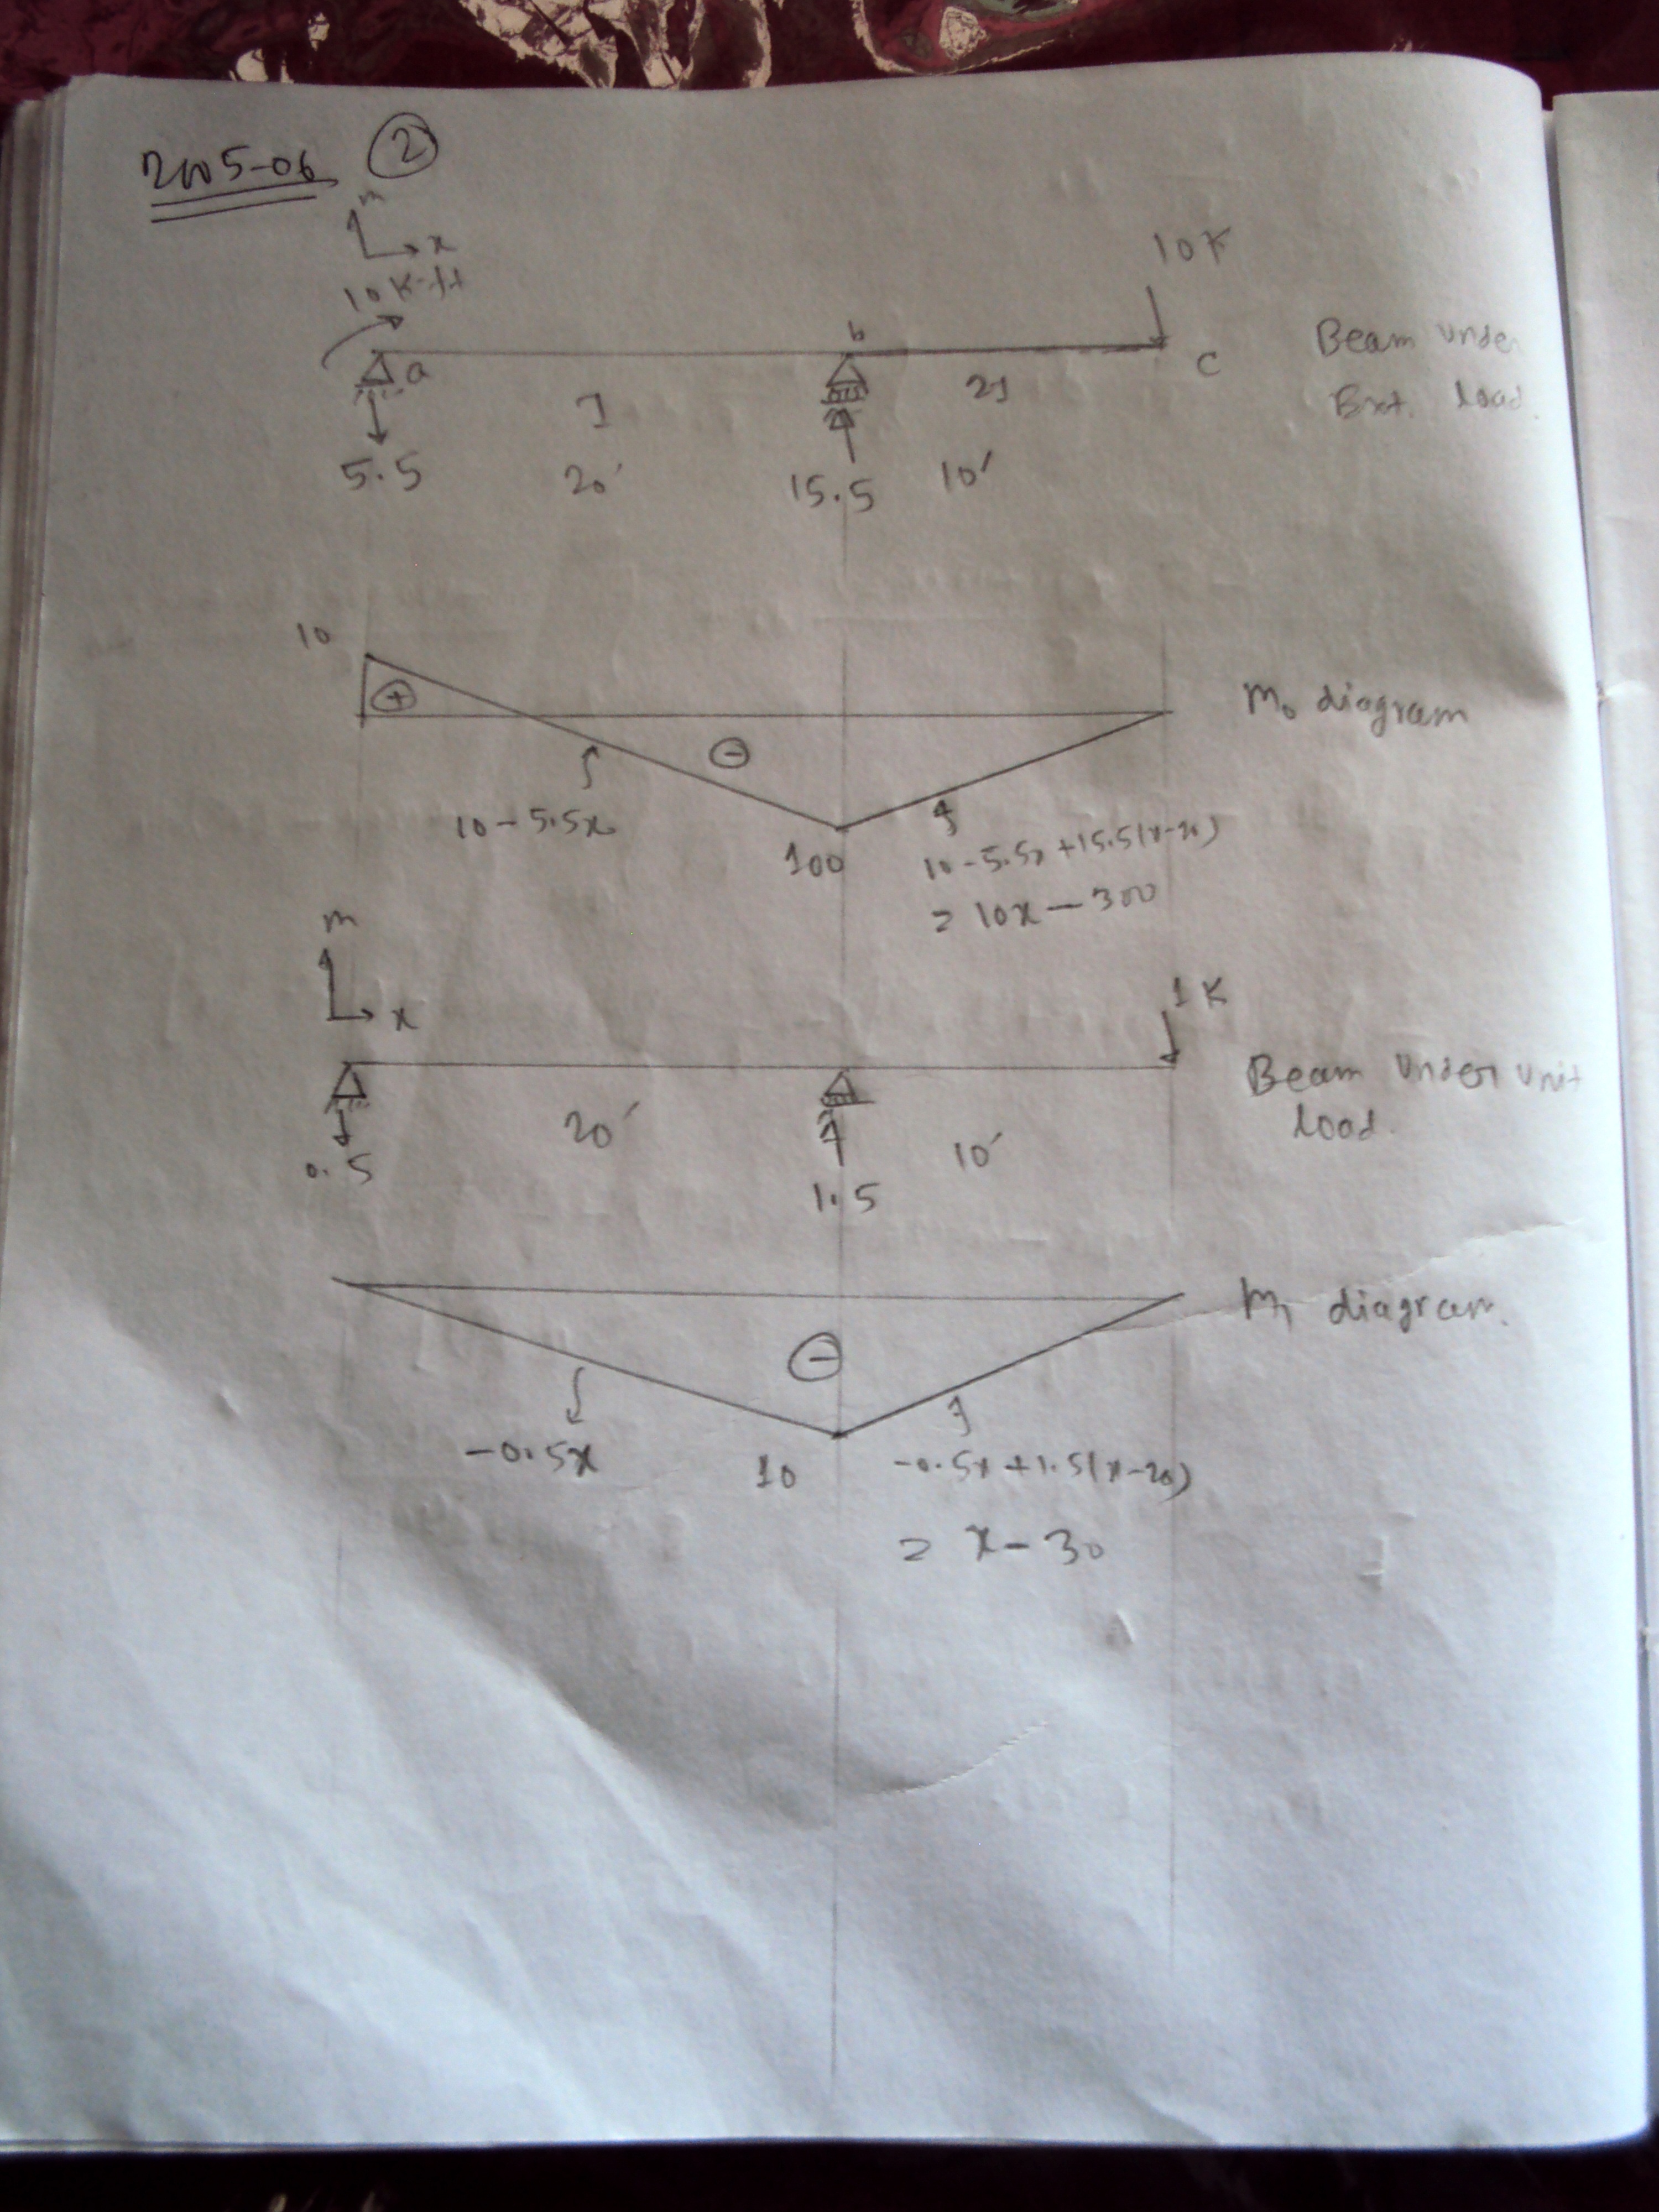 2005-06 ②
m
x
10 K-ft
10 K
b
a
c
Beam Unde
Ext. load.
I
2I
5.5
20'
15.5
10'
10
+
-
M₀ diagram
10-5.5x
100
10-5.5x+15.5(x-20)
= 10x-300
m
x
1 K
Beam Under Unit
load.
20'
10'
0.5
1.5
-
M₁ diagram.
-0.5x
10
-0.5x+1.5(x-20)
= x-30